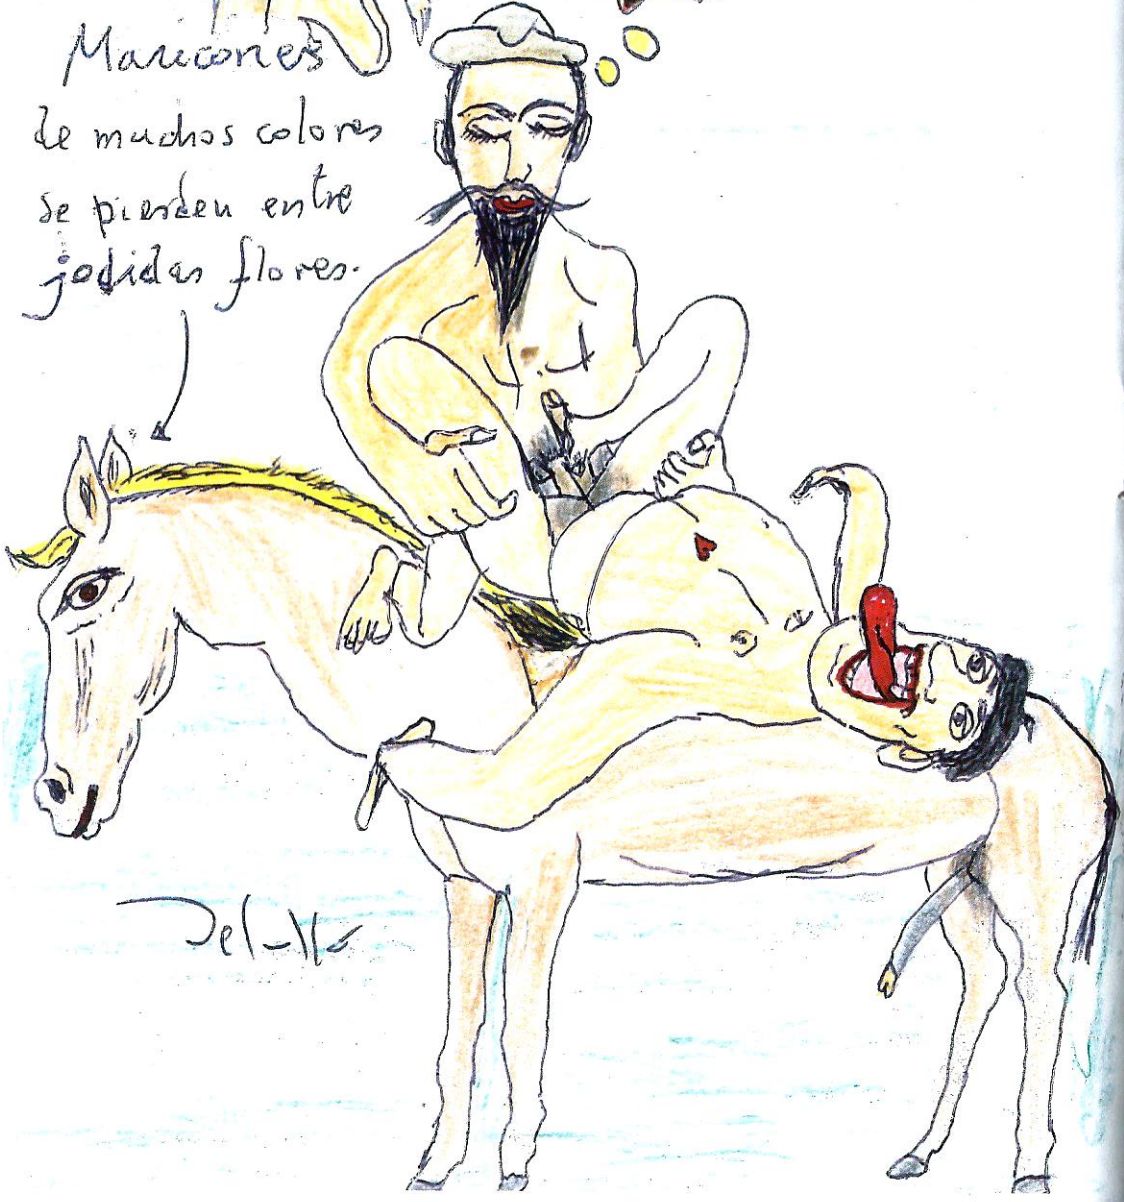 Maricones
de muchos colores
se pierden entre
jodidas flores.